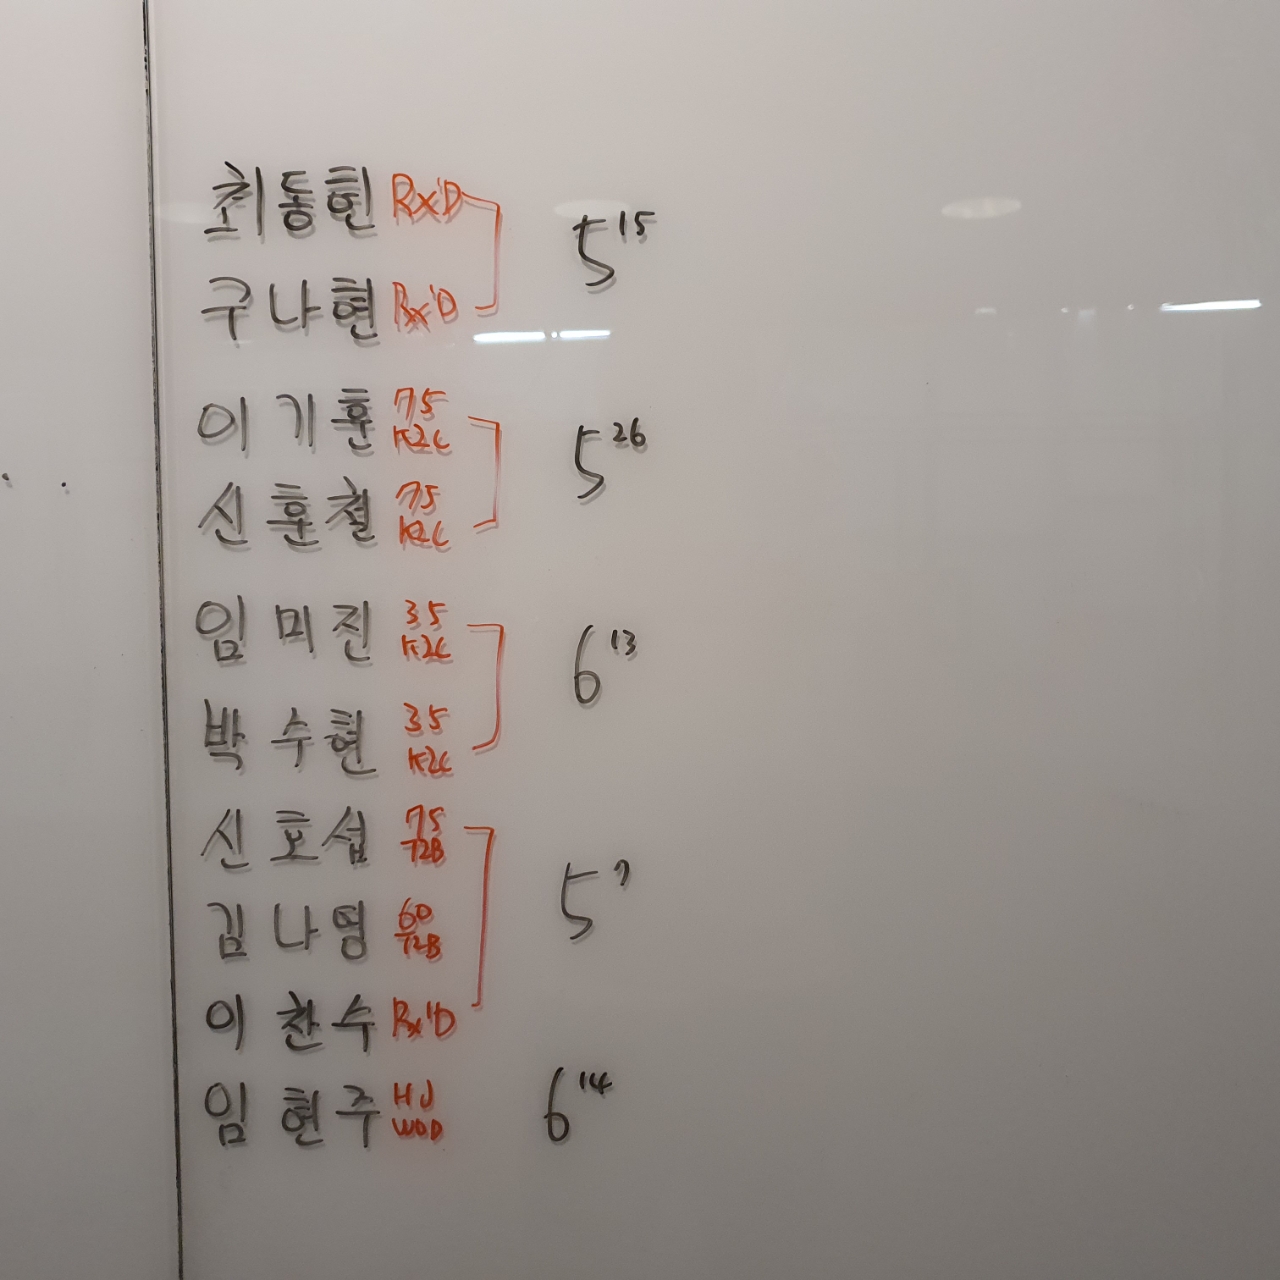 최동현 Rx'D
5 15
구나현 Rx'D
이기훈 75 K2C
5 26
신훈철 75 K2C
임미진 35 K2C
6 13
박수현 35 K2C
신호섭 75 T2B
김나영 60 T2B
5 7
이찬수 Rx'D
임현주 HJ WOD
6 14